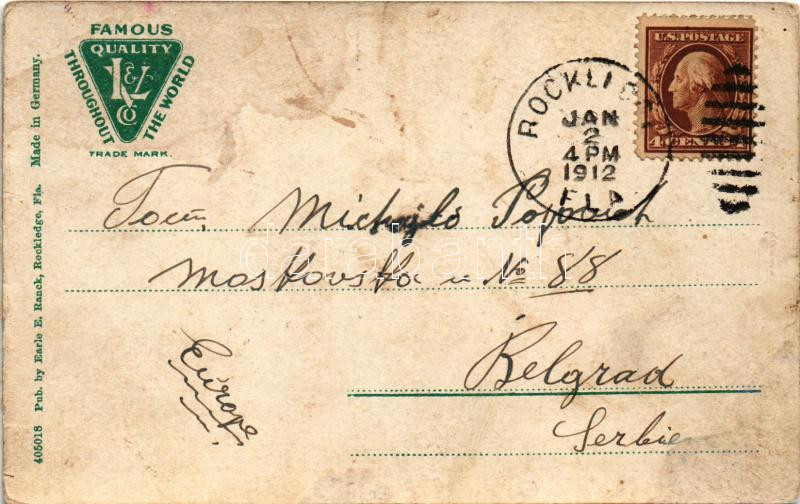 FAMOUS
QUALITY
THROUGHOUT THE WORLD
L & Co
TRADE MARK.
405018 Pub. by Earle E. Ranck, Rockledge, Fla. Made in Germany.
U.S. POSTAGE
4 CENTS 4
ROCKLEDGE
JAN
2
4 PM
1912
FLA
Michajlo Popovich
Moskovska u No 88
Europe
Belgrad
Serbien
darabanth